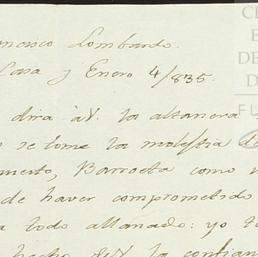 ncisco Lombardo.
Casa y Enero 4/835.
dira à V. la altanera
se tome la molestia de
Barroeta como
de haver comprometido
todo allanado: yo
hecho de V. la confian
CE
E
DE
D
FU